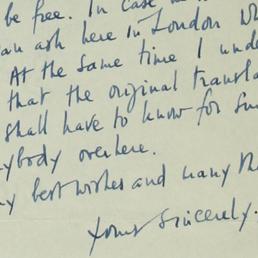 be free. In case
an ash here in London
At the same time I unde
that the original transla
shall have to know for su
ybody over here.
y best wishes and many th
yours sincerely.